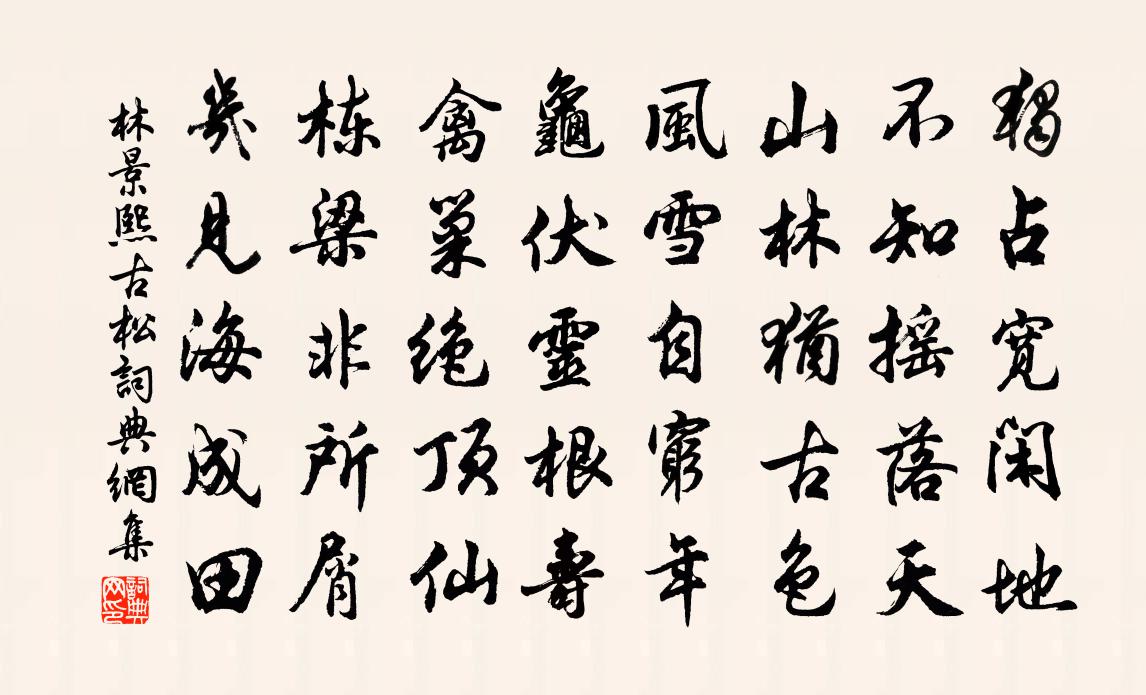 獨占寬閑地
不知搖落天
山林猶古色
風雪自窮年
龜伏靈根壽
禽巢绝顶仙
栋梁非所屑
幾見海成田
林景熙古松詞典網集
詞典网印